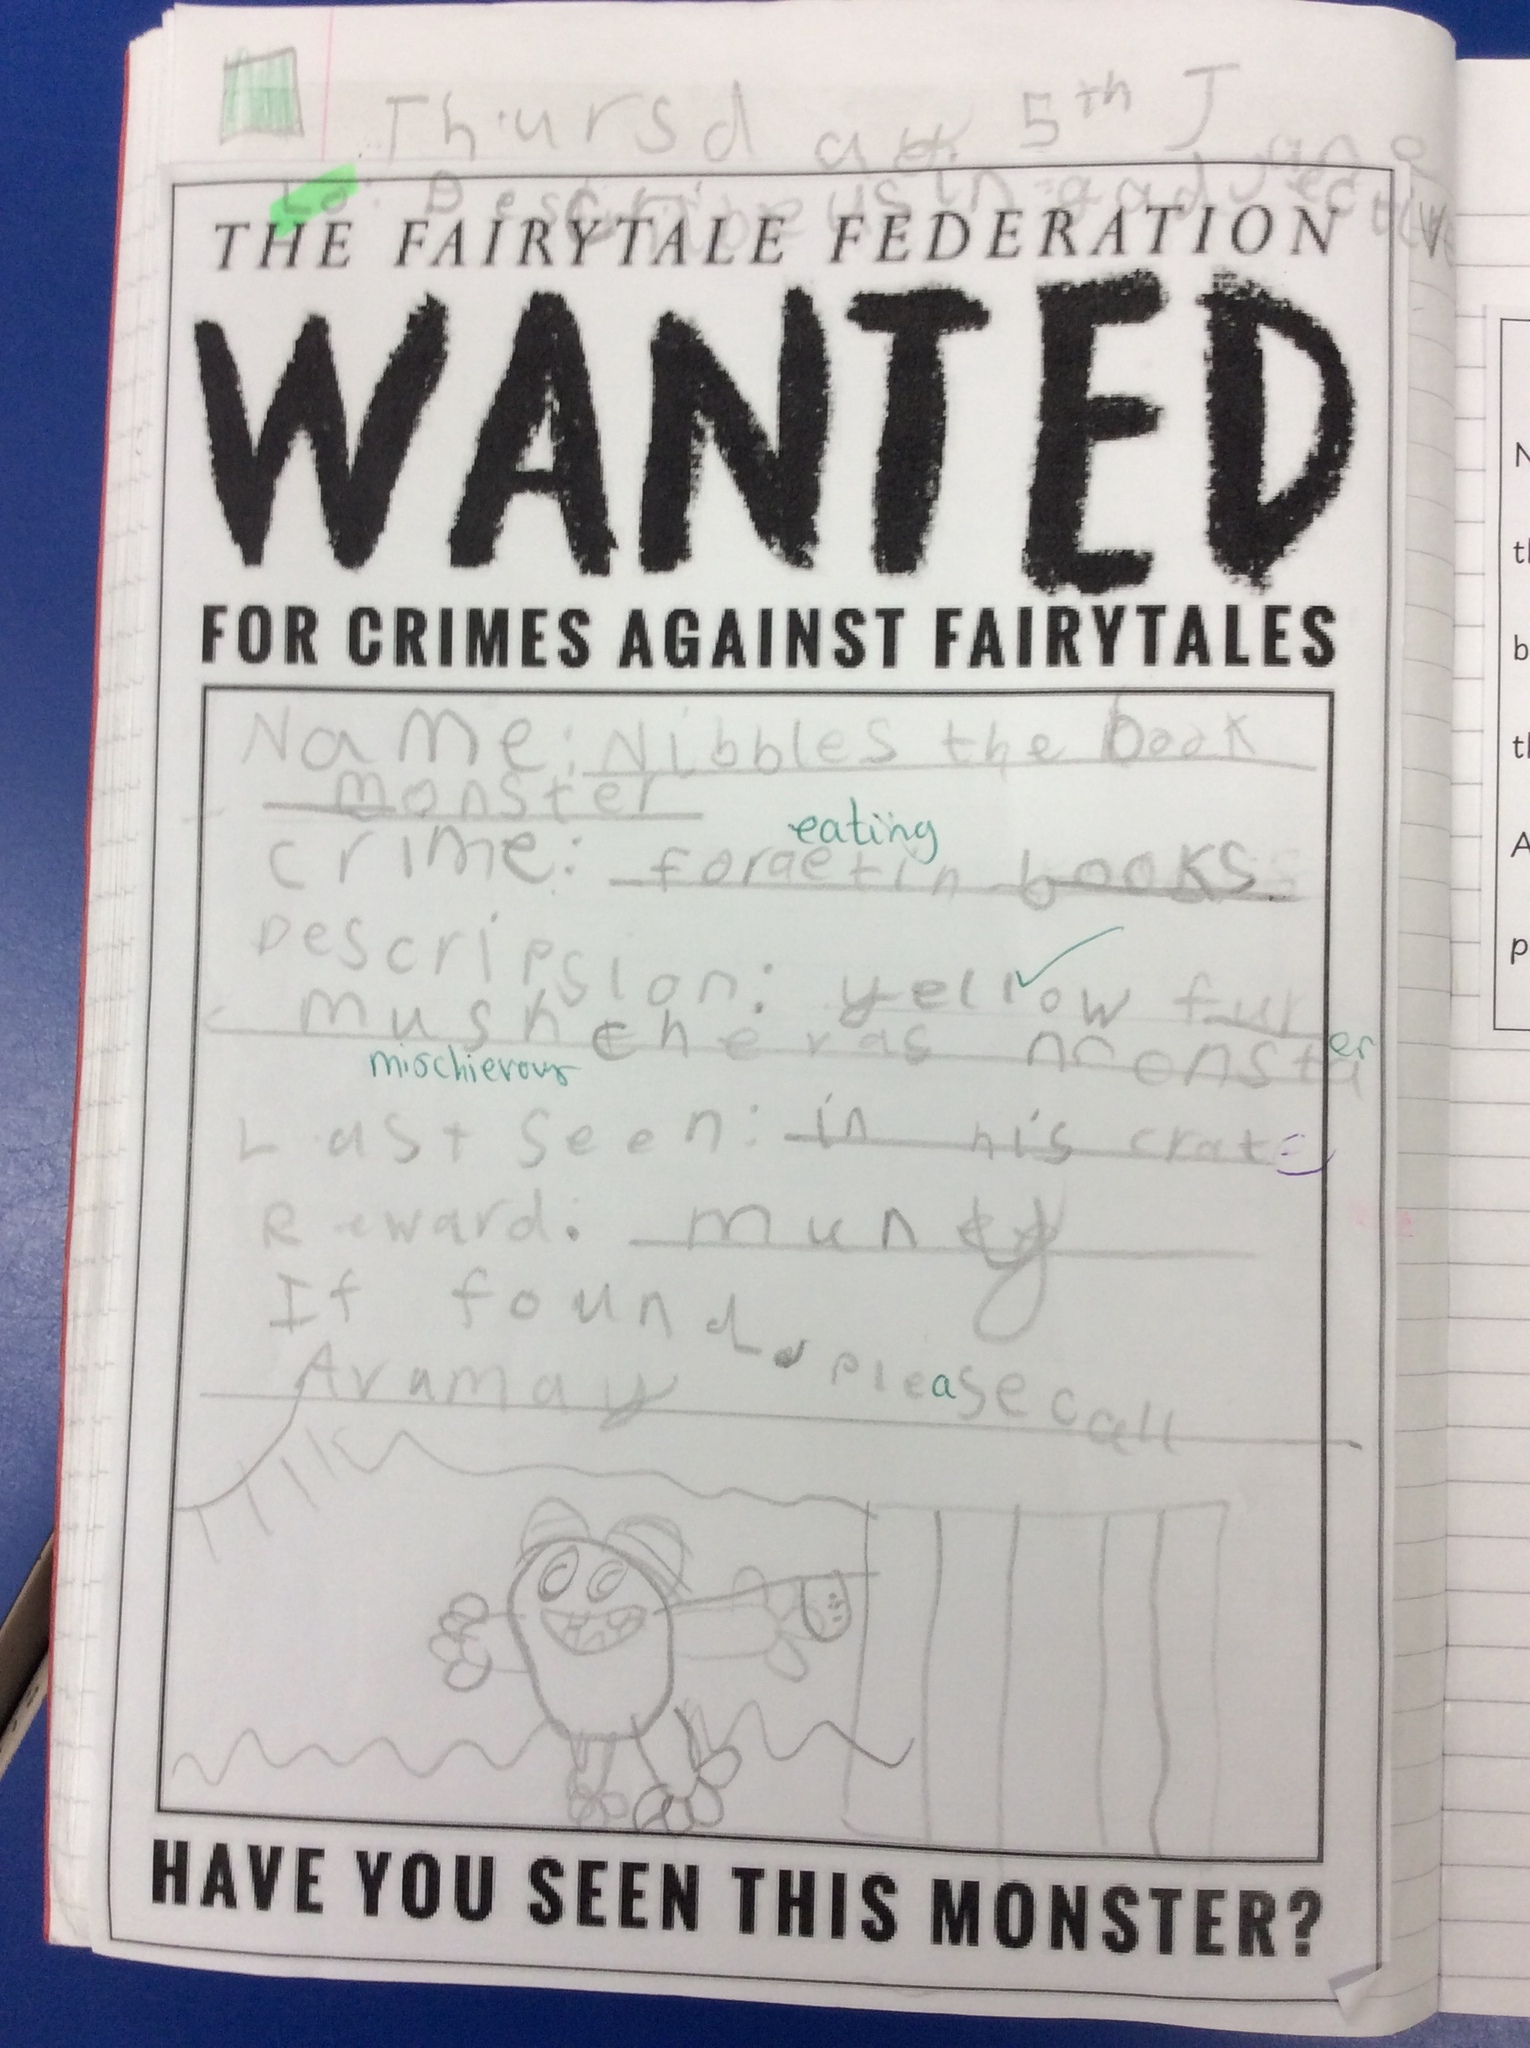 Thursday 5th June
LO: Describe using adjectives
THE FAIRYTALE FEDERATION
WANTED
FOR CRIMES AGAINST FAIRYTALES
Name: Nibbles the book
monster
eating
crime: forgetin books
Descripsion: yellow fur
mushcheras monsta er
mischievous
Last seen: in his crate
Reward: muny
If found, please call
Aramay
HAVE YOU SEEN THIS MONSTER?
N
th
b
th
A
p